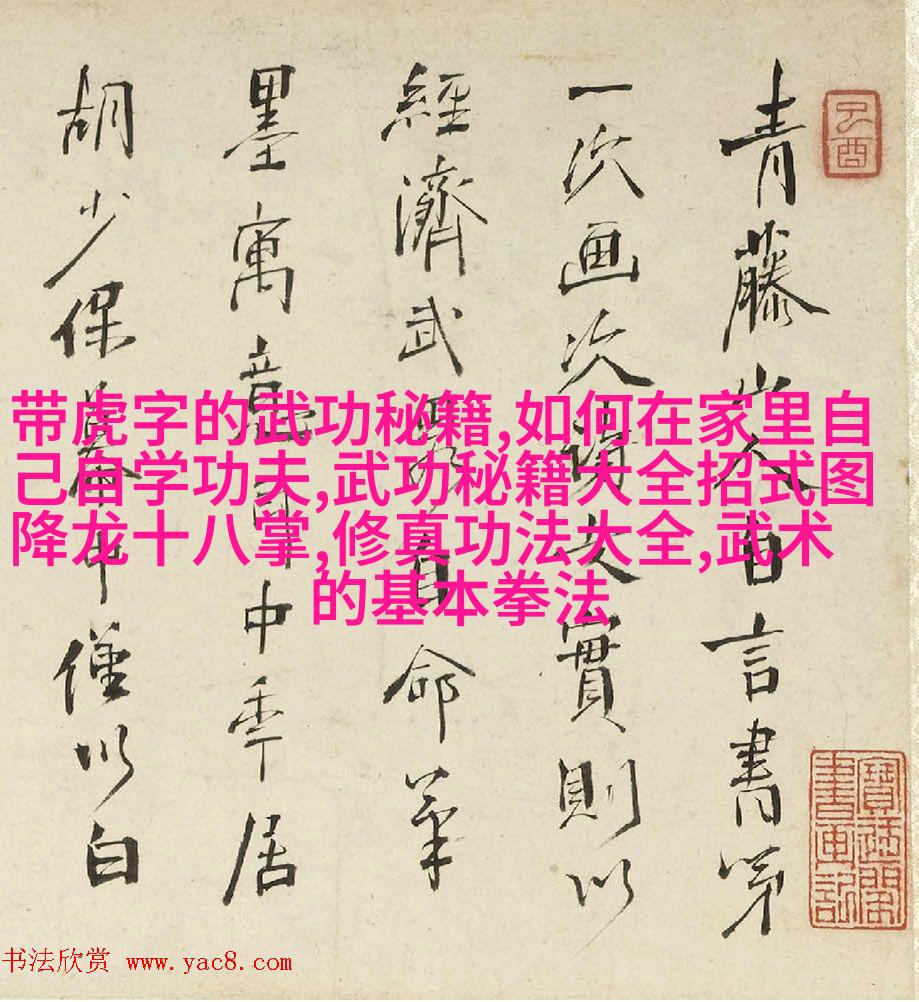 青藤山人自言書第
一次画次詩文實則以
經濟武略自命筆
墨寓意耳中年居
胡少保幕中僅以白
己酉
寶迂閣
書畫記
带虎字的武功秘籍,如何在家里自
己自学功夫,武功秘籍大全招式图
降龙十八掌,修真功法大全,武术
的基本拳法
书法欣赏 www.yac8.com